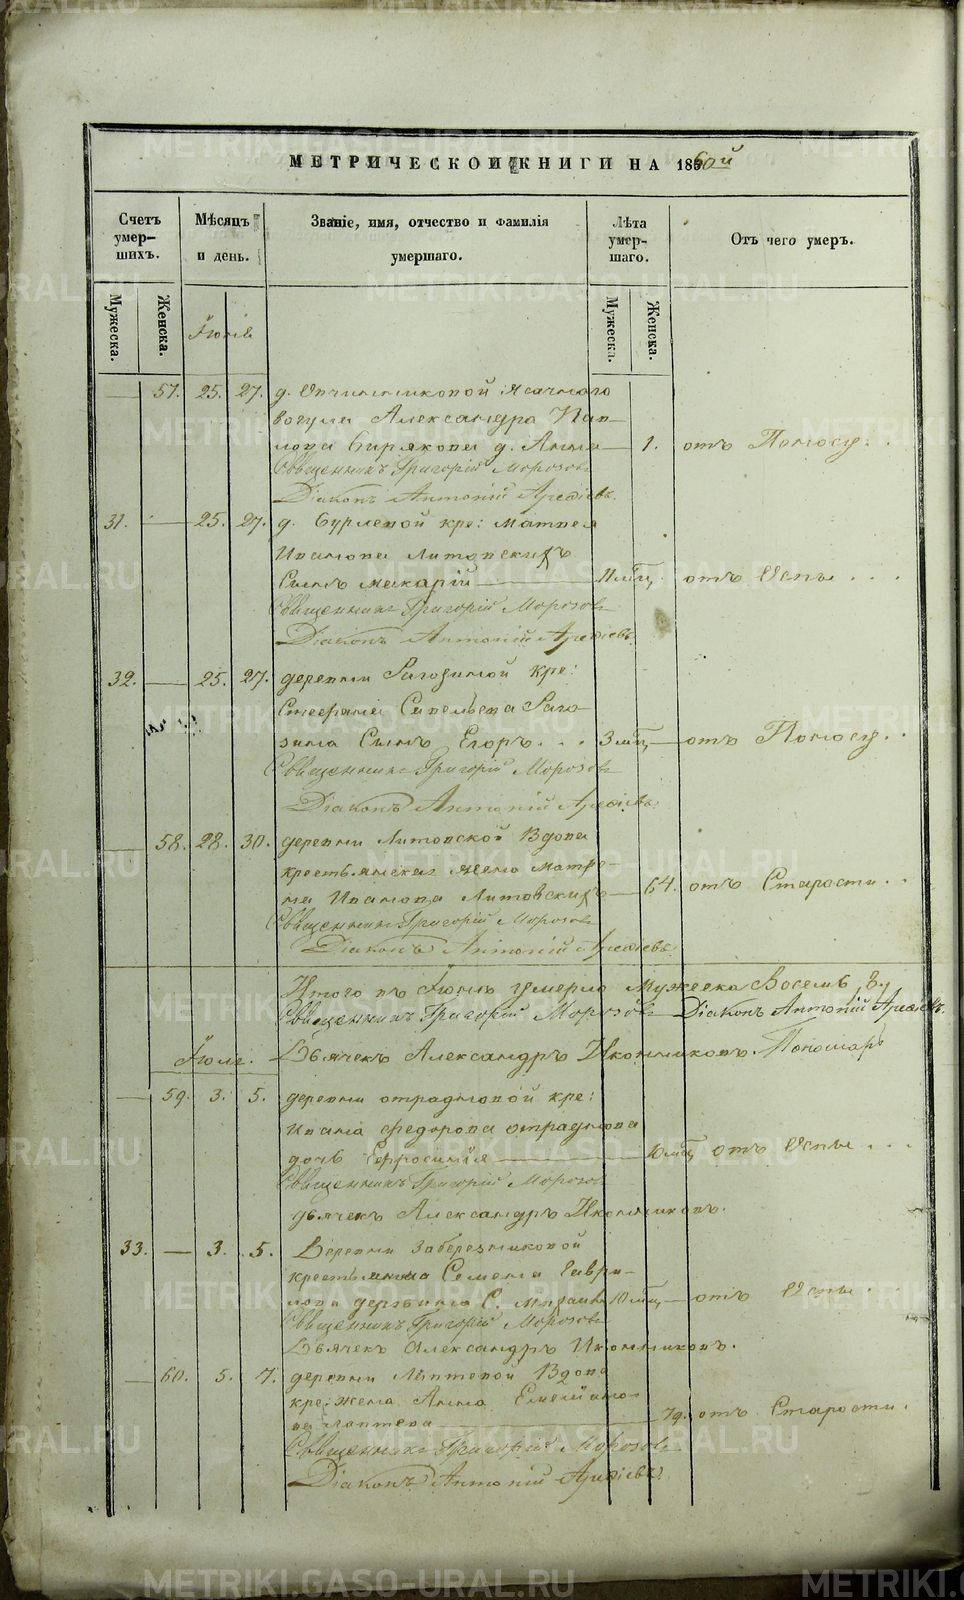 МЕТРИЧЕСКОЙ КНИГИ НА 1860й
Счетъ умер-шихъ. Мѣсяцъ и день. Званіе, имя, отчество и фамилія умершаго. Лѣта умер-шаго. Отъ чего умеръ.
Мужеска. Женска. Мужеска. Женска.
Іюнія
57. 25. 27. д. Овчинниковой Ясачнаго
вогула Александра Пав-
лова Бирякова д. Анна 1. отъ Поносу.
Священникъ Григорій Морозовъ
Діаконъ Антоній
31. 25. 27. д. Бурлевой кре: Матвея
Иванова Литовскихъ
Сынъ Макарій 11 мц. отъ Оспы
Священникъ Григорій Морозовъ
Діаконъ Антоній
32. 25. 27. деревни Рагозиной кре:
Стефана Савельева Раго-
зина Сынъ Егоръ 3 мц. отъ Поносу
Священникъ Григорій Морозовъ
Діаконъ Антоній
58. 28. 30. деревни Литовской Вдова
крестьянская жена Матре-
на Иванова Литовскихъ 64. отъ Старости
Священникъ Григорій Морозовъ
Діаконъ Антоній
Итого въ Іюнѣ умерло Мужеска Восемь, 8.
Священникъ Григорій Морозовъ Діаконъ Антоній
Іюле. Дьячекъ Александръ Иконниковъ. Пономарь
59. 3. 5. деревни отрадновой кре:
Ивана Федорова отраднова
дочь Ефросинія 10 мц отъ Оспы
Священникъ Григорій Морозовъ
дьячекъ Александръ Иконниковъ.
33. 3. 5. Деревни Заберезниковой
крестьянина Семена Гаври-
лова Дерябина С. 10 мц. отъ Оспы
Священникъ Григорій Морозовъ
Дьячекъ Александръ Иконниковъ.
60. 5. 7. деревни Лаптевой Вдова
кре: жена Анна Емельяно-
ва Лаптева 79. отъ Старости.
Священникъ Григорій Морозовъ
Діаконъ Антоній
METRIKI.GASO-URAL.RU